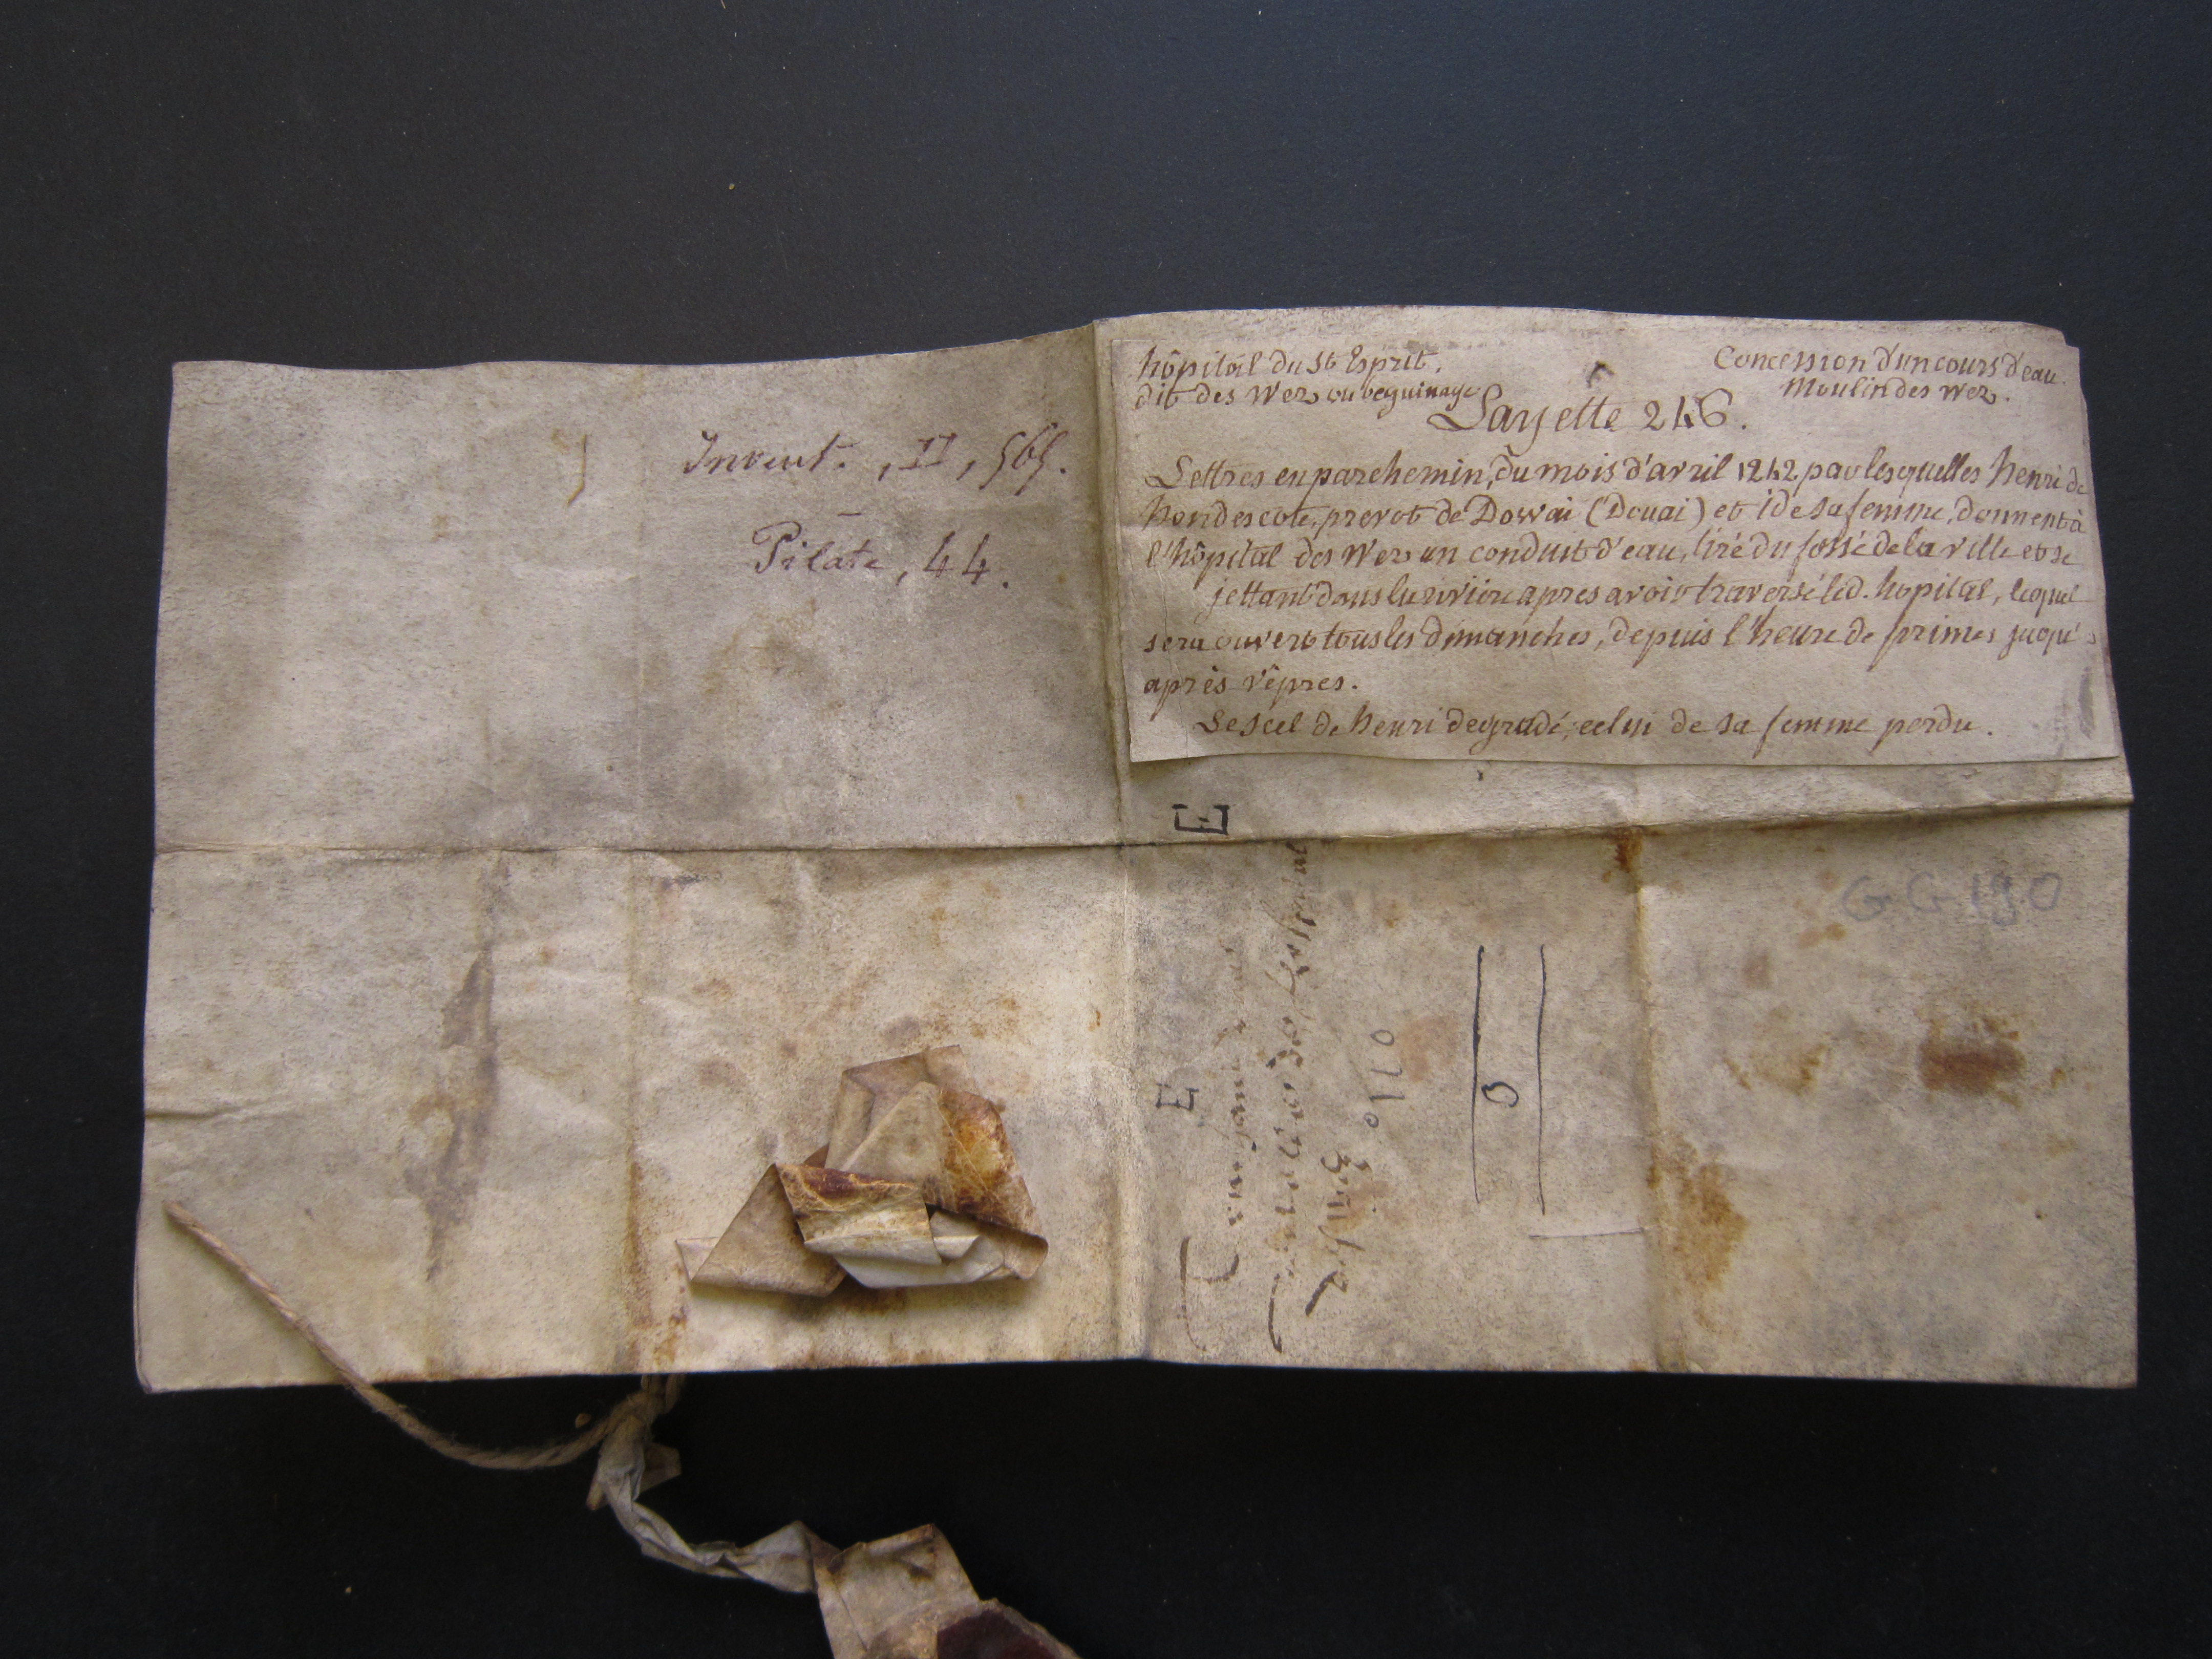 Invent. , II, 565.
Pilate, 44.
hôpital du St Esprit.
dit des Wez ou beguinage
Concession d'un cours d'eau.
Moulin des Wez.
Layette 246.
Lettres en parchemin, du mois d'avril 1242 par lesquelles henri de
hondescote, prevot de Dowai (Douai) et ide sa femme, donnent à
l'hôpital des Wez un conduit d'eau, tiré du fossé de la ville et se
jettant dans la riviere apres avoir traversé led. hopital, lequel
sera ouvert tous les dimanches, depuis l'heure de primes juqu's
après vêpres.
Le scel de henri degradé; celui de sa femme perdu.
E
E
GG 190